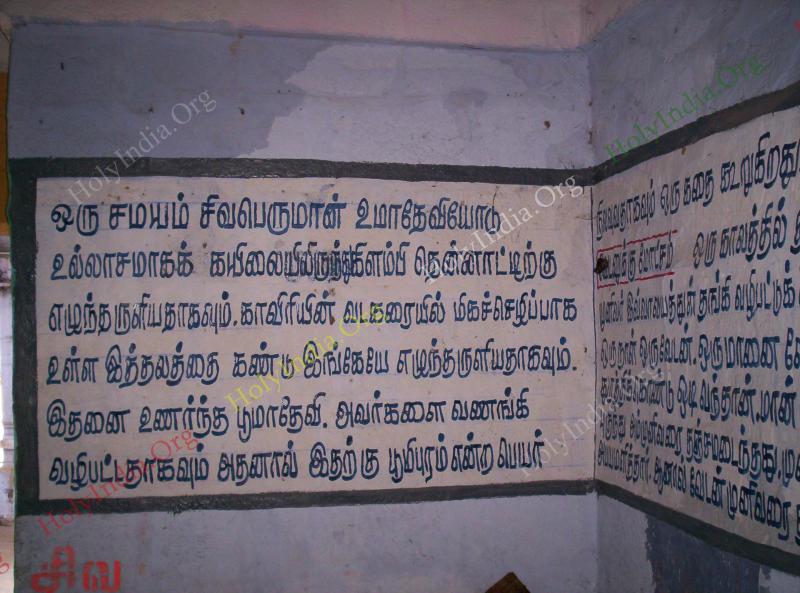 ஒரு சமயம் சிவபெருமான் உமாதேவியோடு
உல்லாசமாகக் கயிலையிலிருந்து கிளம்பி தென்னாட்டிற்கு
எழுந்தருளியதாகவும். காவிரியின் வடகரையில் மிகச்செழிப்பாக
உள்ள இத்தலத்தை கண்டு இங்கேயே எழுந்தருளியதாகவும்.
இதனை உணர்ந்த பூமாதேவி. அவர்களை வணங்கி
வழிபட்டதாகவும் அதனால் இதற்கு பூமிபுரம் என்ற பெயர்
ஒரு கதை கூறுகிறது
மோட்சம் ஒரு காலத்தில்
தங்கி வழிபட்டுக்
ஒருநாள் ஒருவேடன். ஒருமானை
ஓடி வந்தான். மான்
தஞ்சமடைந்தது.
ஆனால் வேடன் முனிவரை
சிவ
HolyIndia.Org
HolyIndia.Org
HolyIndia.Org
HolyIndia.Org
HolyIndia.Org
HolyIndia.Org
HolyIndia.Org
HolyIndia.Org